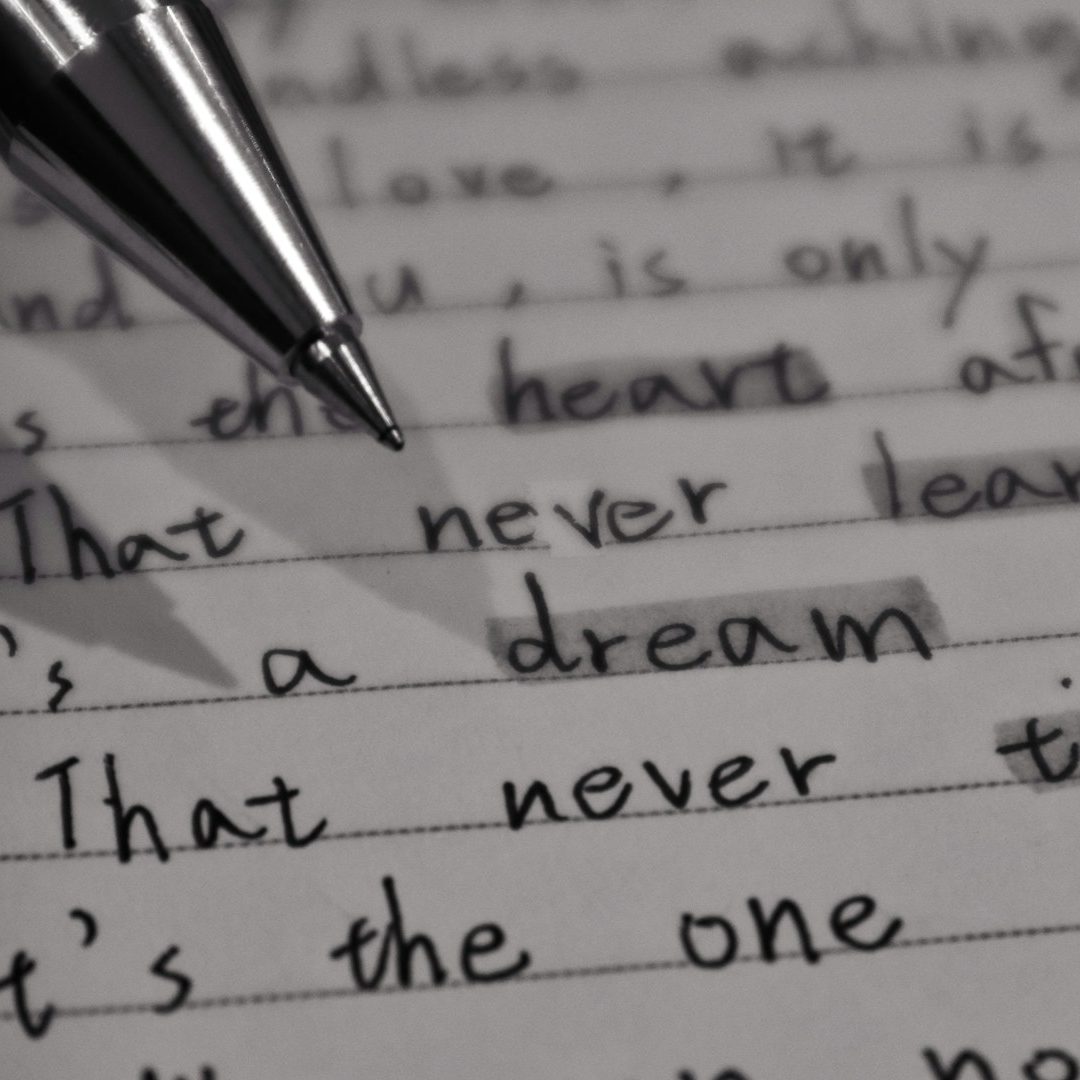 ndless aching
love, it is
nd u, is only
s the heart af
That never lear
's a dream
That never t
t's the one